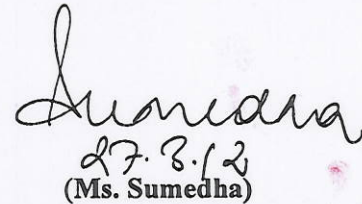 Sumedha
27.3.12
(Ms. Sumedha)